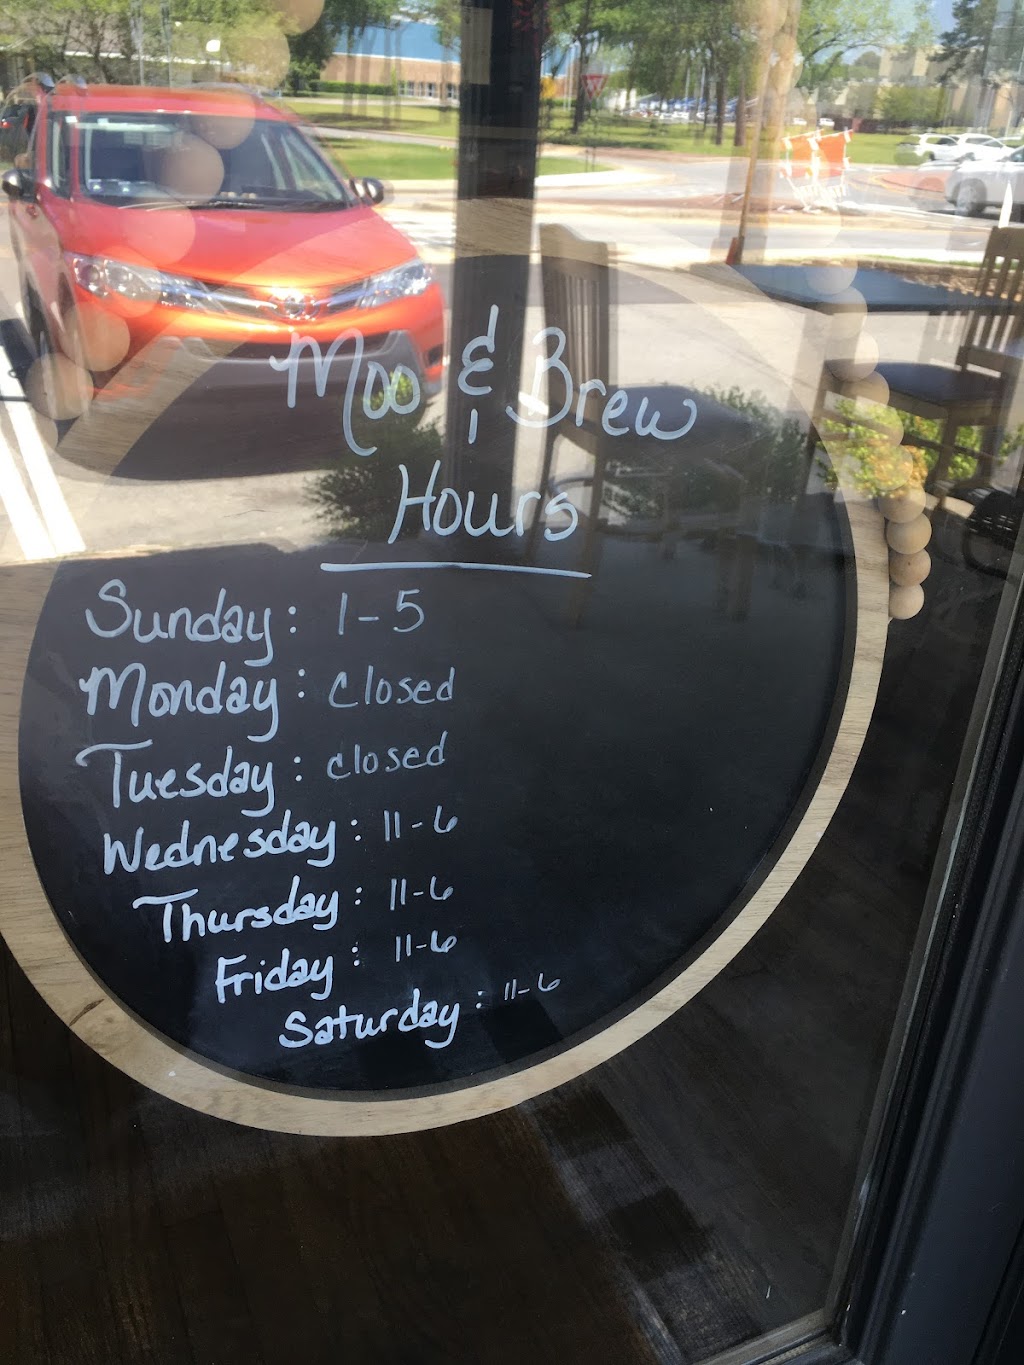 Moo & Brew
Hours
Sunday: 1-5
Monday: closed
Tuesday: closed
Wednesday: 11-6
Thursday: 11-6
Friday: 11-6
Saturday: 11-6